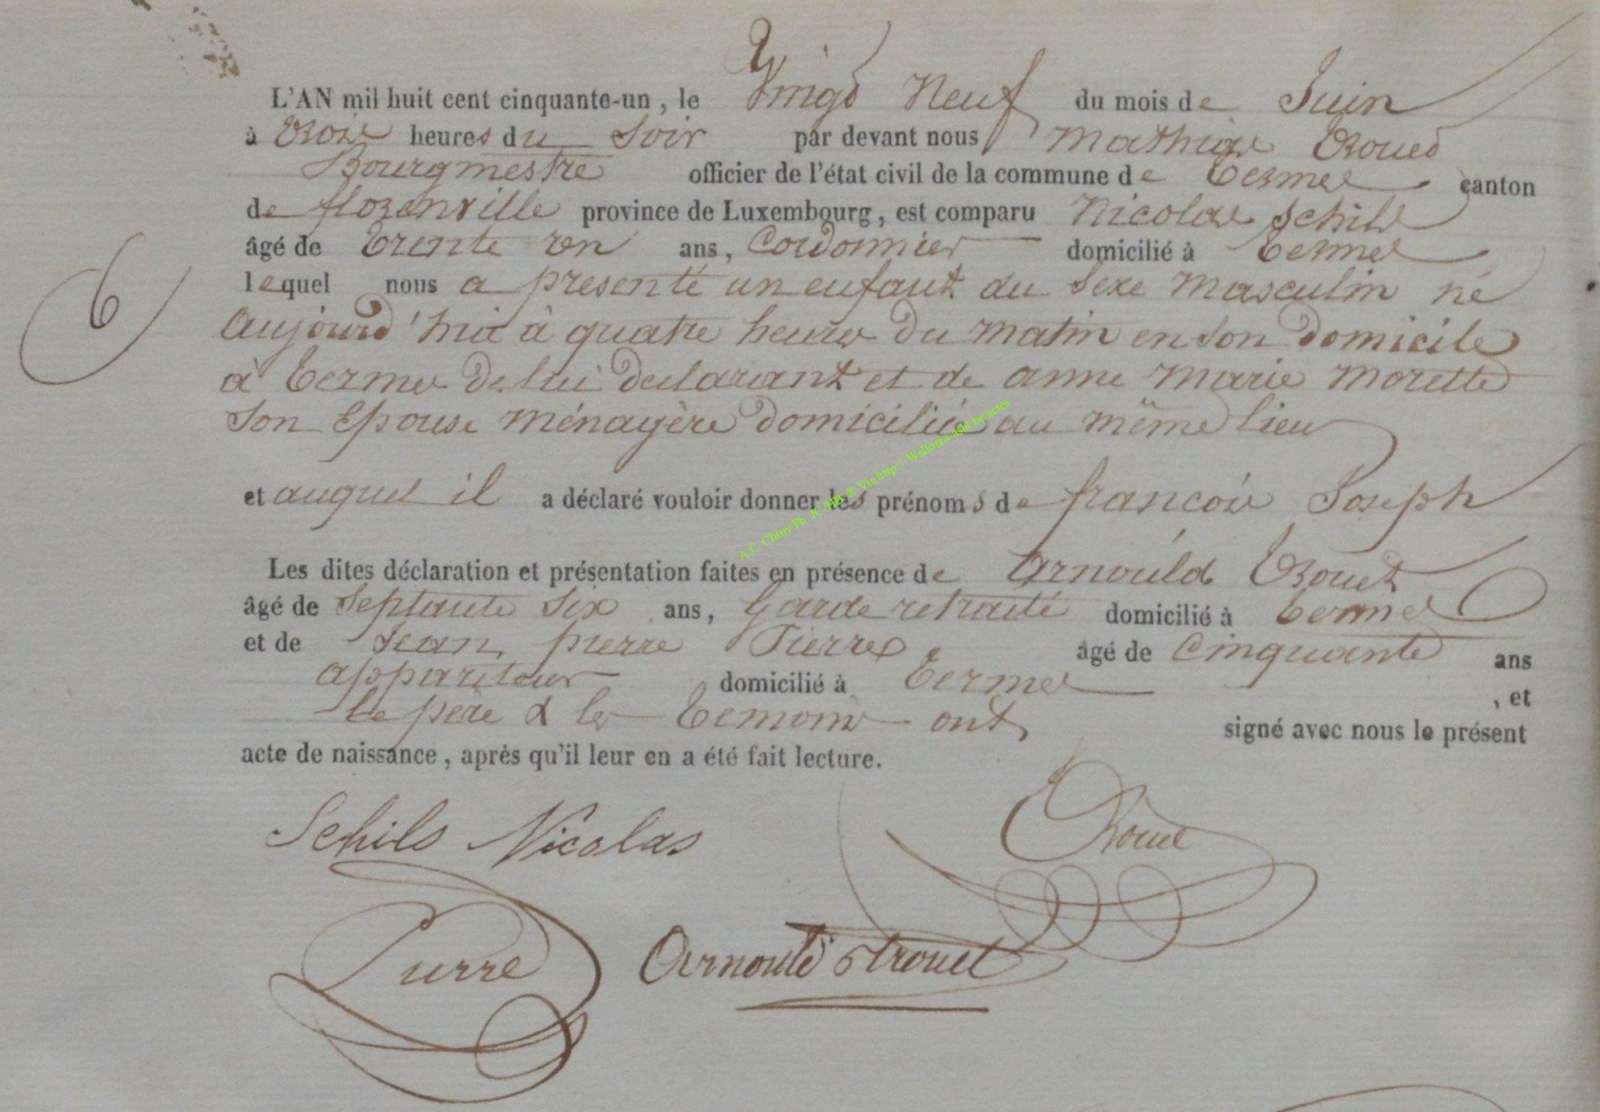 L'AN mil huit cent cinquante-un, le Vingt Neuf du mois de Juin
à trois heures du Soir par devant nous Mathias Trouet
Bourgmestre officier de l'état civil de la commune de Termes canton
de florenville province de Luxembourg, est comparu Nicolas Schils
âgé de trente un ans, Cordonnier domicilié à Termes
lequel nous a présenté un enfant du Sexe Masculin né
6
Aujourd'hui à quatre heures du Matin en Son domicile
à Termes de lui déclarant et de anne Marie Morette
Son Epouse Ménagère domiciliée au même lieu
et auquel il a déclaré vouloir donner les prénoms de francois Joseph
Les dites déclaration et présentation faites en présence de Arnould Trouet
âgé de Septante Six ans, Garde retraité domicilié à Termes
et de Jean pierre Pierre âgé de Cinquante ans
appariteur domicilié à Termes , et
le père & les témoins ont signé avec nous le présent
acte de naissance, après qu'il leur en a été fait lecture.
Schils Nicolas
Trouet
Pierre Arnould trouet